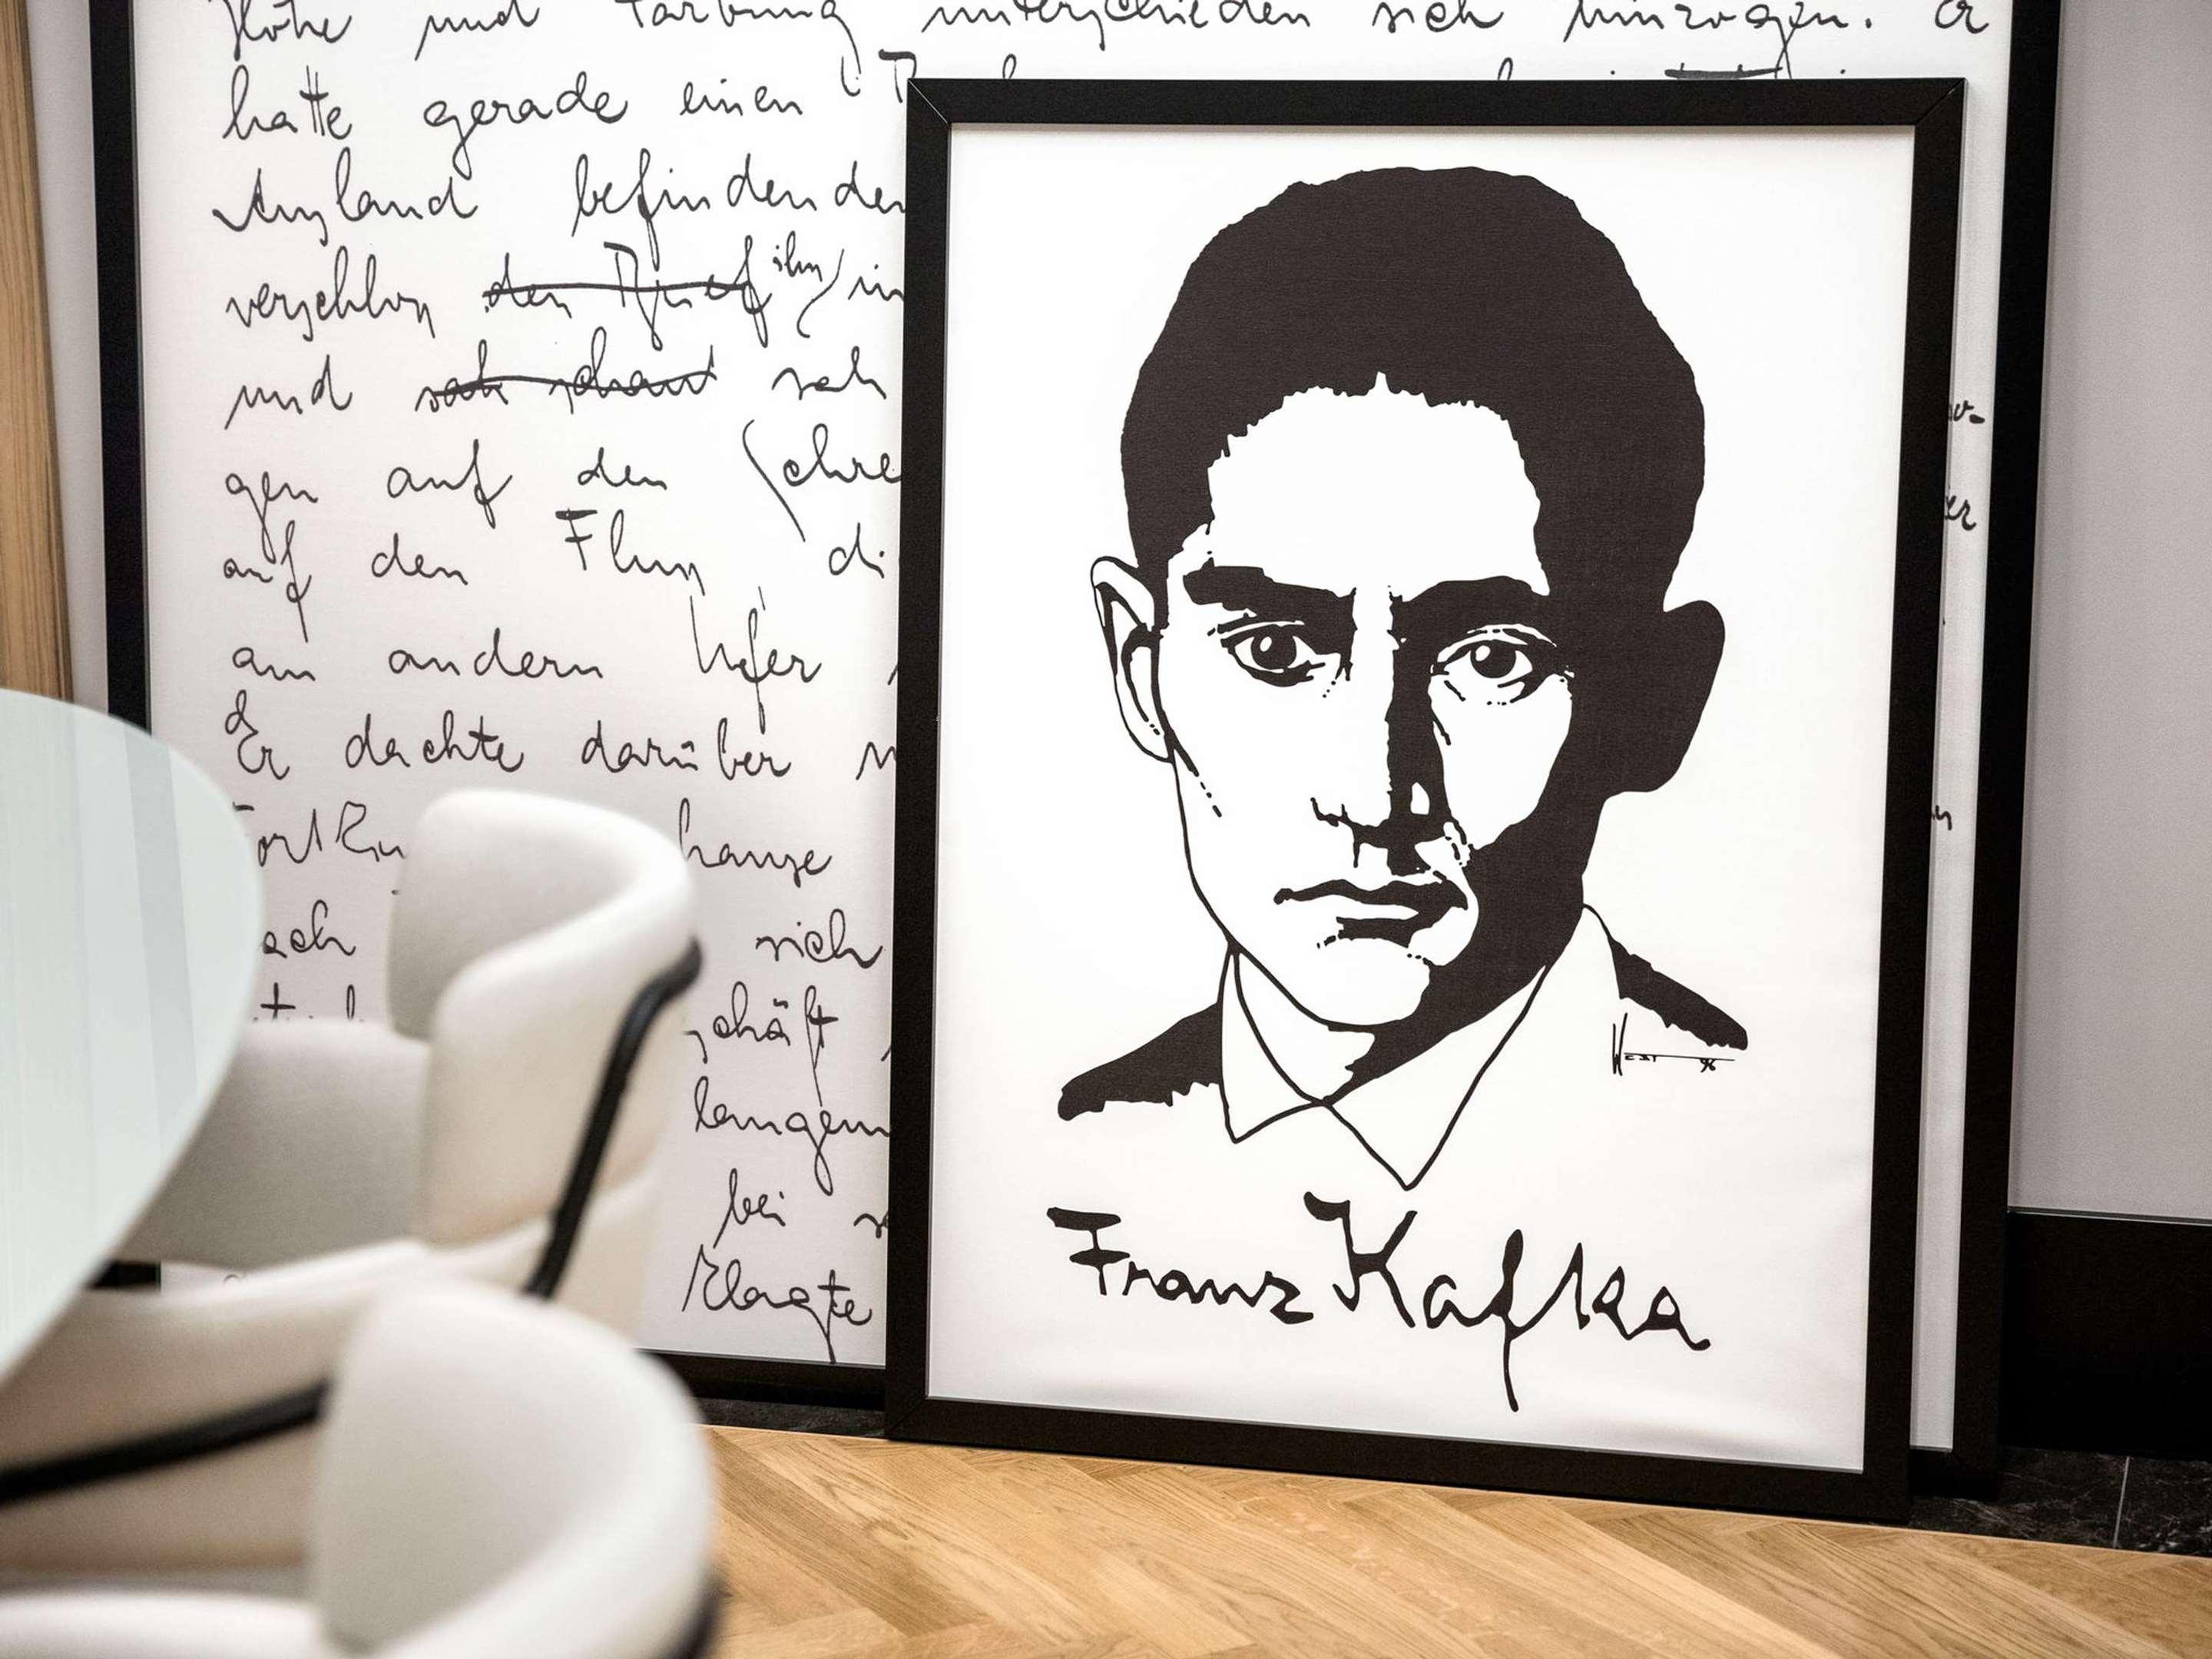 Höhe und Färbung unterschieden sich hinzogen. Er
hatte gerade einen
Ausland befindenden
verschloß den Brief ihn in
und sah schaut sah
gen auf den Schre
auf den Fluß, di
am andern Ufer
Er dachte darüber
hause
ach sich
schäft
langem
bei
klagte
West 96
Franz Kafka